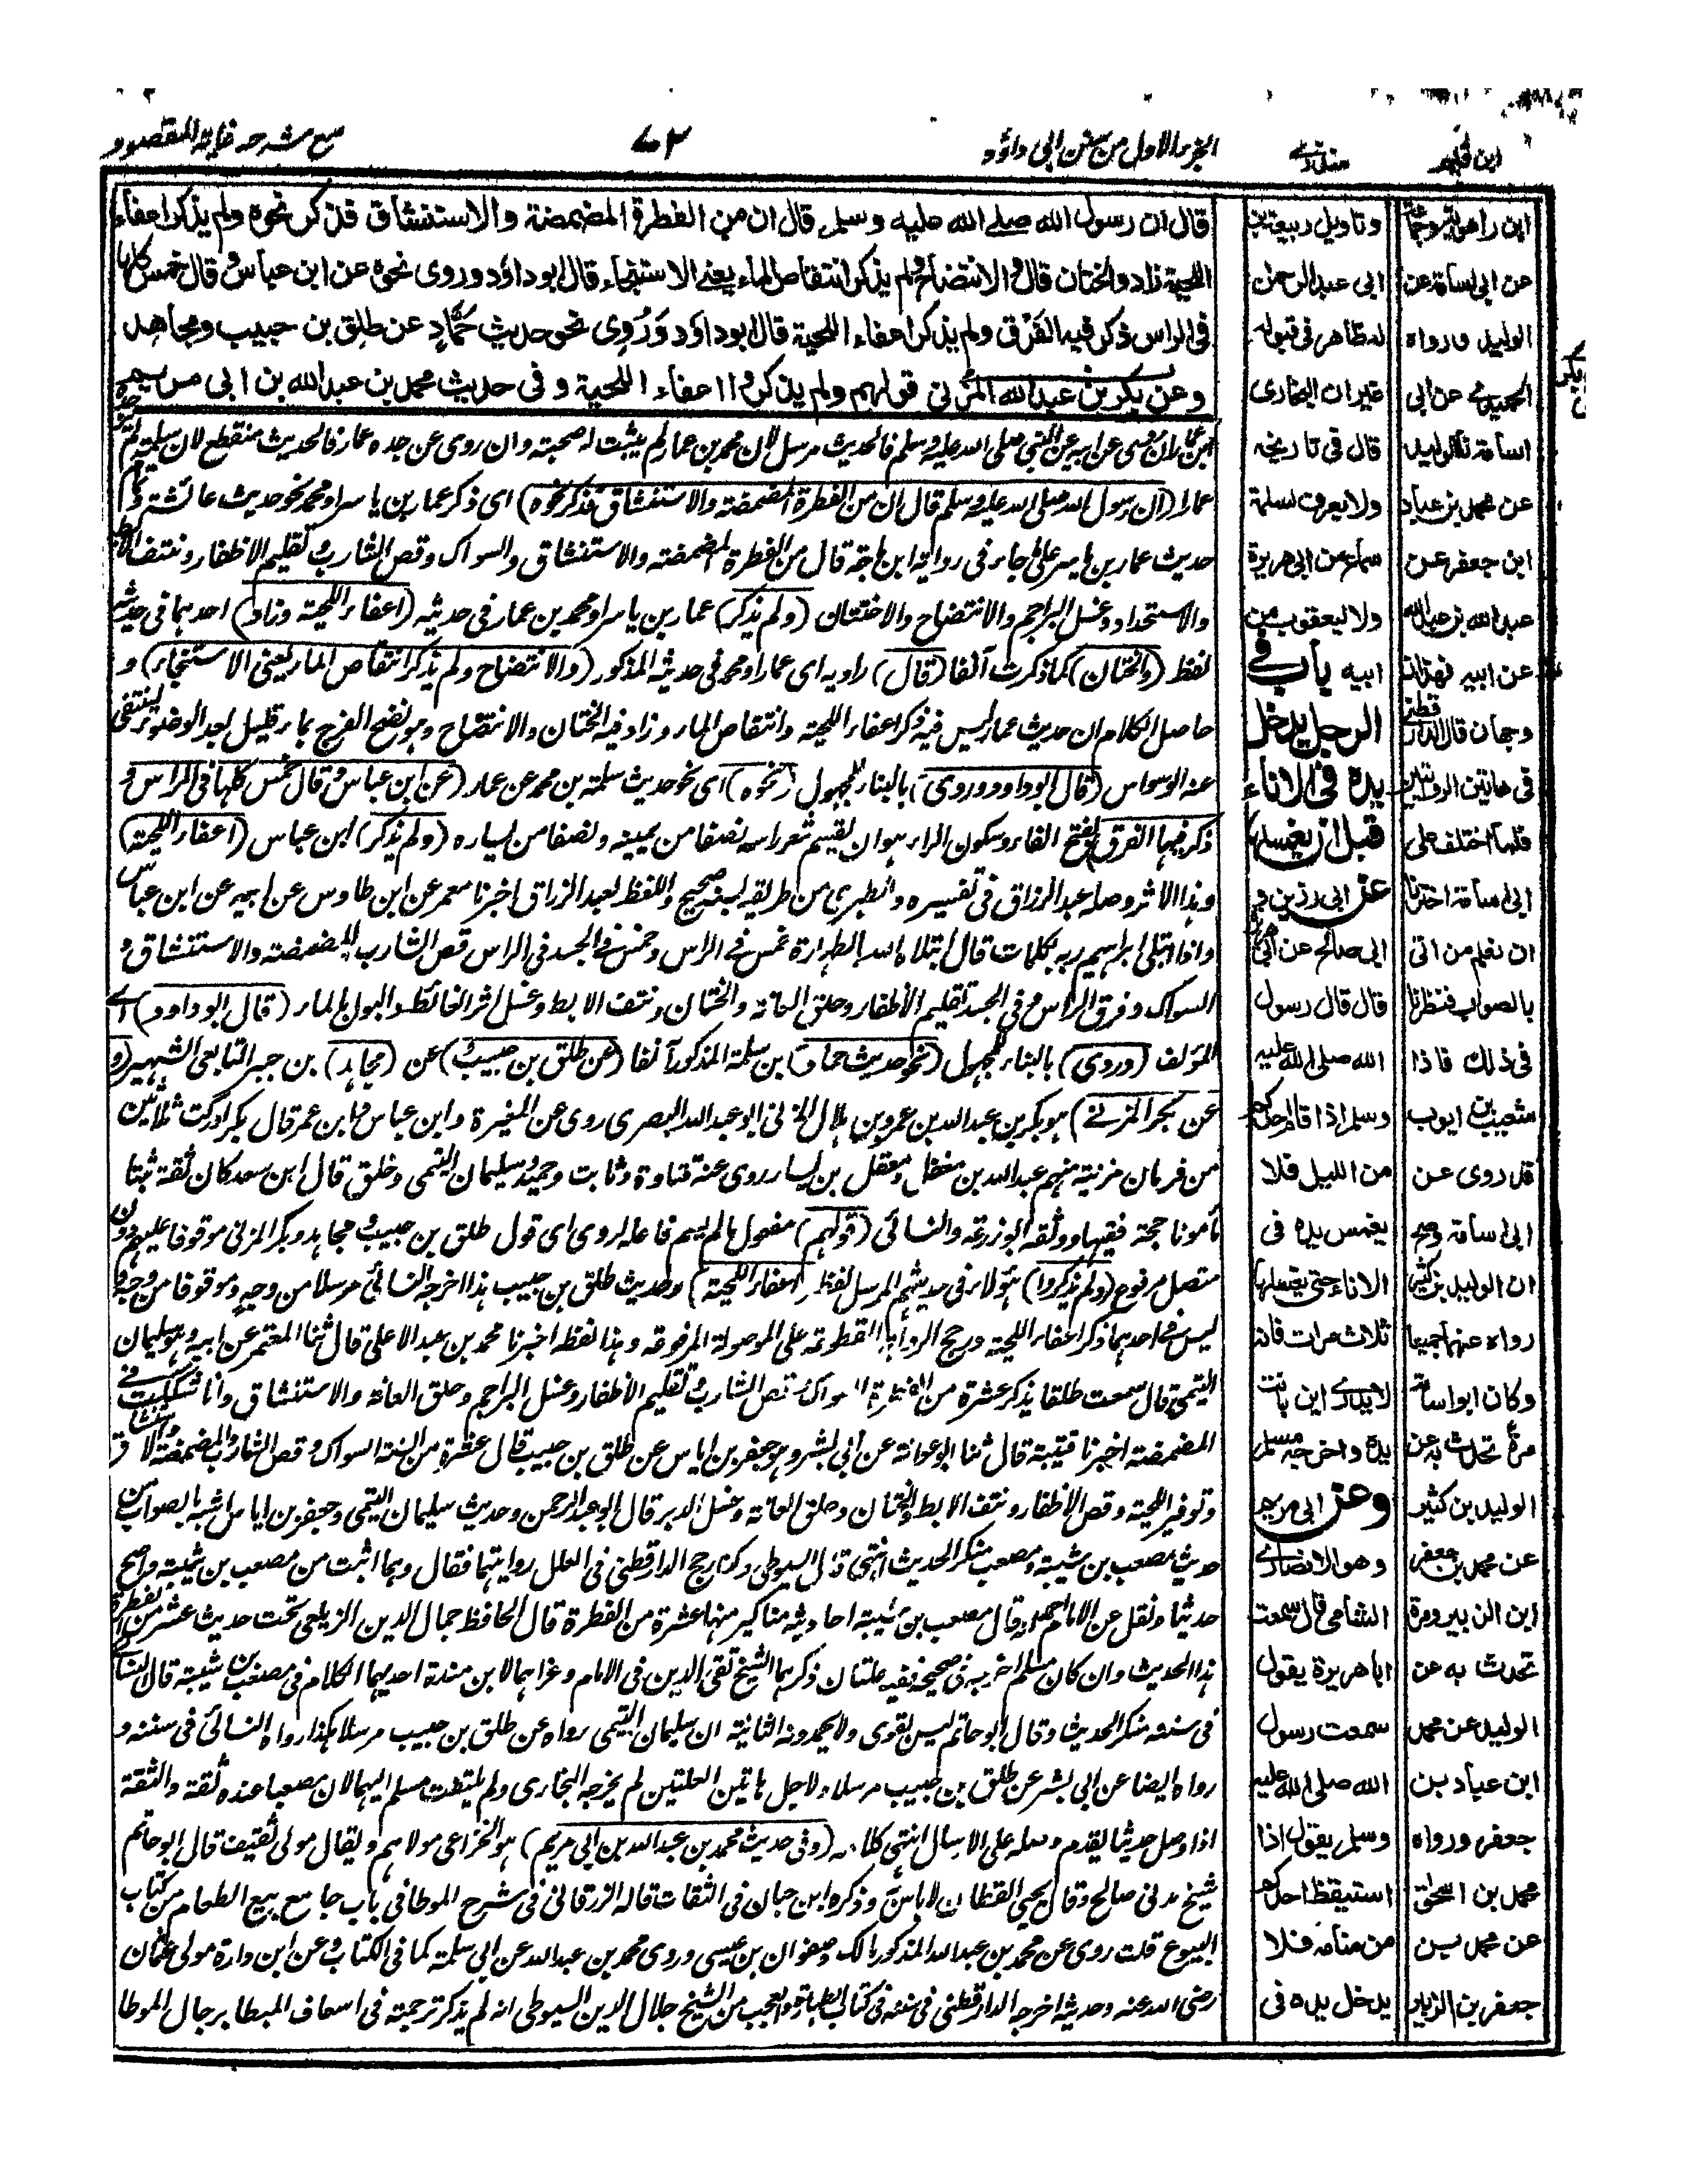 الجزء الاول من سنن ابي داؤد
٧٣
مع شرحه غاية المقصود
قال ان رسول الله صلے الله عليه وسلم قال ان من الفطرة المضمضة والاستنشاق فذكر نحوه ولم يذكر اعفاء
اللحية زاد والختان قال والانتضاح ولم يذكر انتقاص الماء يعنے الاستنجاء قال ابوداؤد وروى نحوه عن ابن عباس وقال خمس كلها
فى الراس ذكر فيه الفَرْق ولم يذكر اعفاء اللحية قال ابوداؤد وَرُوِى نحو حديث حَمَّادٍ عن طلق بن حبيب ومجاهد
وعن بكر بن عبدالله المزنى قولهم ولم يذكروا اعفاء اللحية وفى حديث محمد بن عبدالله بن ابى مريم
عن ابيه عن النبي صلى الله عليه وسلم فالحديث مرسل لان محمد بن عمار لم يثبت له صحبته وان روى عن جده عمار فالحديث منقطع لان سلمة لم
عمارا (ان رسول الله صلى الله عليه وسلم قال ان من الفطرة المضمضة والاستنشاق فذكر نحوه) اى ذكر عمار بن ياسر او محمد نحو حديث عائشة
حديث عمار بن ياسر على ما جاء فى رواية ابن ماجة قال من الفطرة المضمضة والاستنشاق والسواك وقص الشارب وتقليم الاظفار ونتف الابط
والاستحداد وغسل البراجم والانتضاح والاختتان (ولم يذكر) عمار بن ياسر او محمد بن عمار فى حديثه (اعفاء اللحية وزاد) احدهما فى حديثه
لفظ (والختان) كما ذكرت آنفا (قال) راويه اى عمار او محمد فى حديثه المذكور (والانتضاح ولم يذكر انتقاص الماء يعنى الاستنجاء) و
حاصل الكلام ان حديث عمار ليس فيه ذكر اعفاء اللحية وانتقاص الماء وزاد فيه الختان والانتضاح وهو نضح الفرج بماء قليل بعد الوضوء لينتفى
عنه الوسواس (قال ابوداود وروى) بالبناء للمجهول (نحوه) اى نحو حديث سلمة بن محمد عن عمار (عن ابن عباس وقال خمس كلها فى الراس و
ذكر فيها الفرق) بفتح الفاء وسكون الراء هو ان يقسم شعر راسه نصفا من يمينه ونصفا من يساره (ولم يذكر) ابن عباس (اعفاء اللحية)
وهذا الاثر وصله عبد الرزاق فى تفسيره والطبرى من طريقه بسند صحيح واللفظ لعبد الرزاق اخبرنا معمر عن ابن طاوس عن ابيه عن ابن عباس
واذ ابتلى ابراهيم ربه بكلمات قال ابتلاه الله بالطهارة خمس فى الراس وخمس فى الجسد فى الراس قص الشارب والمضمضة والاستنشاق و
السواك وفرق الراس وفى الجسد تقليم الأظفار وحلق العانة والختان ونتف الابط وغسل اثر الغائط والبول بالماء (قال ابوداود) اے
المؤلف (وروى) بالبناء للمجهول (نحو حديث حماد) بن سلمة المذكور آنفا (عن طلق بن حبيب و) عن (مجاهد) بن جبر التابعى الشهير (و
عن بكر المزنے) هو بكر بن عبدالله بن عمرو بن هلال المزنى ابو عبدالله البصرى روى عن المغيرة وابن عباس وابن عمر قال بكر ادركت ثلاثين
من فرسان مزينة منهم عبدالله بن مغفل ومعقل بن يسار روى عنه قتادة وثابت وحميد وسليمان التيمى وخلق قال ابن سعد كان ثقة ثبتا
مأمونا حجة فقيها ووثقه ابوزرعة والنسائى (قولهم) مفعول مالم يسم فاعله لروى اى قول طلق بن حبيب ومجاهد وبكر المزنى موقوفا عليهم دون
متصل مرفوع (ولم يذكروا) هؤلاء فى حديثهم المرسل لفظ (اعفاء اللحية) وحديث طلق بن حبيب هذا اخرجه النسائى مرسلا من وجهٍ وموقوفا من وجه و
ليس فى احدهما ذكر اعفاء اللحية ورجح الرواية المقطوعة على الموصولة المرفوعة وهذا لفظه اخبرنا محمد بن عبد الاعلى قال ثنا المعتمر عن ابيه وهو سليمان
التيمى قال سمعت طلقا يذكر عشرة من الفطرة السواك وقص الشارب وتقليم الأظفار وغسل البراجم وحلق العانة والاستنشاق وانا شككت فے
المضمضة اخبرنا قتيبة قال ثنا ابوعوانة عن ابى بشر وهو جعفر بن اياس عن طلق بن حبيب قال عشرة من السنة السواك وقص الشارب والمضمضة والاستنشاق
وتوفير اللحية وقص الاظفار ونتف الابط والختان وحلق العانة وغسل الدبر قال ابو عبد الرحمن وحديث سليمان التيمى وجعفر بن اياس اشبه بالصواب من
حديث مصعب بن شيبة ومصعب منكر الحديث انتهى قال السيوطى وكذا رجح الدارقطنى فى العلل روايتهما فقال وهما اثبت من مصعب بن شيبة واصح
حديثا ونقل عن الامام احمد انه قال مصعب بن شيبة احاديثه مناكير منها عشرة من الفطرة قال الحافظ جمال الدين الزيلعى تحت حديث عشر من الفطرة
هذا الحديث وان كان مسلم اخرجه فى صحيحه ففيه علتان ذكرهما الشيخ تقى الدين فى الامام وعزاهما لابن مندة احديهما الكلام فى مصعب بن شيبة قال النسائى
فى سننه منكر الحديث وقال ابوحاتم ليس بقوى ولا يحمدونه الثانية ان سليمان التيمى رواه عن طلق بن حبيب مرسلا هكذا رواه النسائى فى سننه و
رواه ايضا عن ابى بشر عن طلق بن حبيب مرسلا ولاجل هاتين العلتين لم يخرجه البخارى ولم يلتفت مسلم اليهما لان مصعبا عنده ثقة والثقة
اذا وصل حديثا يقدم وصله على الارسال انتهى كلامه (وفى حديث محمد بن عبدالله بن ابى مريم) هو الخزاعى مولاهم ويقال مولى ثقيف قال ابوحاتم
شيخ مدنى صالح وقال يحيى القطان لا باس به وذكره ابن حبان فى الثقات قاله الزرقانى فى شرح الموطا فى باب جامع بيع الطعام من كتاب
البيوع قلت روى عن محمد بن عبدالله المذكور مالك وصفوان بن عيسى وروى محمد بن عبدالله عن ابى سلمة كما فى الكتاب وعن ابن دارة مولى عثمان
رضى الله عنه وحديثه اخرجه الدارقطنى فى سننه فى كتاب الطهارة والعجب من الشيخ جلال الدين السيوطى انه لم يذكر ترجمته فى اسعاف المبطا برجال الموطا
وتاويل ربيعة بن
ابى عبدالرحمن
له ظاهر فى قبوله
غير ان البخارى
قال فى تاريخه
ولا يعرف لسلمة
سماع من ابى هريرة
ولا ليعقوب من
ابيه باب فے
الرجل يدخل
يده فى الاناء
قبل ان يغسلها
عن ابى رزين و
ابى صالح عن ابى هريرة
قال قال رسول
الله صلى الله عليه
وسلم اذا قام احدكم
من الليل فلا
يغمس يده فى
الاناء حتى يغسلها
ثلاث مرات فانه
لا يدرے اين باتت
يده واخرجه مسلم
وعن ابى مريم
وهو الانصارے
الشامى قال سمعت
ابا هريرة يقول
سمعت رسول
الله صلى الله عليه
وسلم يقول اذا
استيقظ احدكم
من منامه فلا
يدخل يده فى
عن ابى اسامة عن
الوليد ورواه
الحميدے عن ابى
اسامة ثنا الوليد
عن محمد بن عباد
ابن جعفر عن
عبدالله بن عبدالله
عن ابيه فهذان
وجهان قال الدارقطنى
فى هاتين الروايتين
فلما اختلف على
ابى اسامة اخترنا
ان نعلم من اتى
بالصواب فنظرنا
فى ذلك فاذا
شعيب بن ايوب
قد روى عن
ابى اسامة وصح
ان الوليد بن كثير
رواه عنهما جميعا
وكان ابو اسامة
مرة تحدث به عن
الوليد بن كثير
عن محمد بن جعفر
ابن الزبير ومرة
تحدث به عن
الوليد عن محمد
ابن عباد بن
جعفر ورواه
محمد بن اسحٰق
عن محمد بن
جعفر بن الزبير